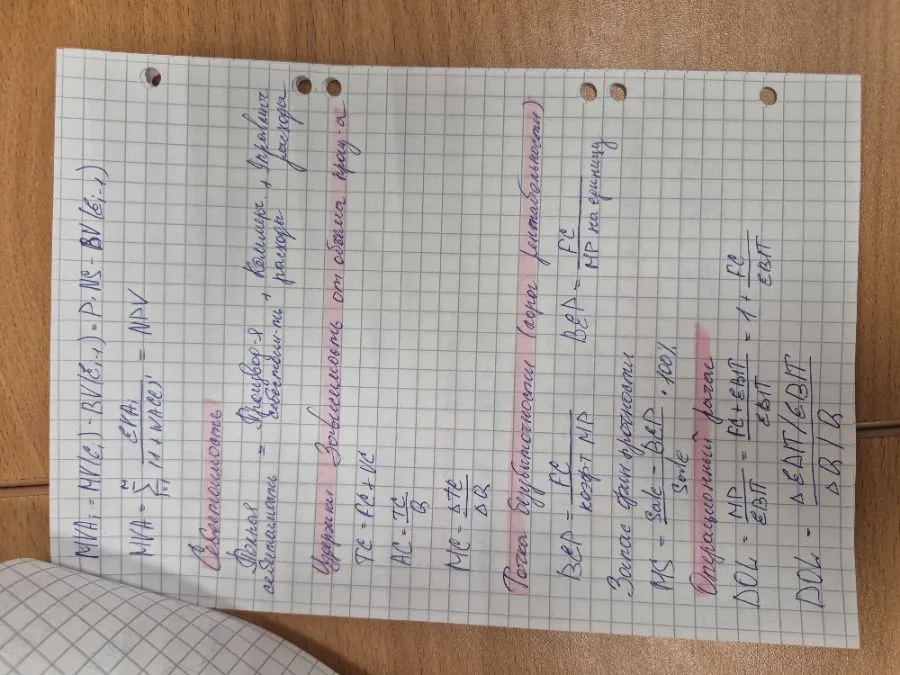 MVA₁ = MV(E₁) - BV(E₁-1) = P·NS - BV(E₁-1)
MVA = ∑ EVAᵢ / (1+WACC)ⁱ = NPV
Себестоимость
Полная себестоимость = Производ-я себестоим-ть + Коммерч. расходы + Управленч расходы
Издержки Зависимость от объема прод-а
TC = FC + VC
AC = TC / Q
MC = ΔTC / ΔQ
Точка безубыточности (порог рентабельности)
BEP = FC / коэф МР BEP = FC / МР на единицу
Запас фин прочности
MS = Sale - BEP / Sale · 100%
Операционный рычаг
DOL = MP / EBIT = FC + EBIT / EBIT = 1 + FC / EBIT
DOL = Δ EBIT / EBIT / Δ Q / Q